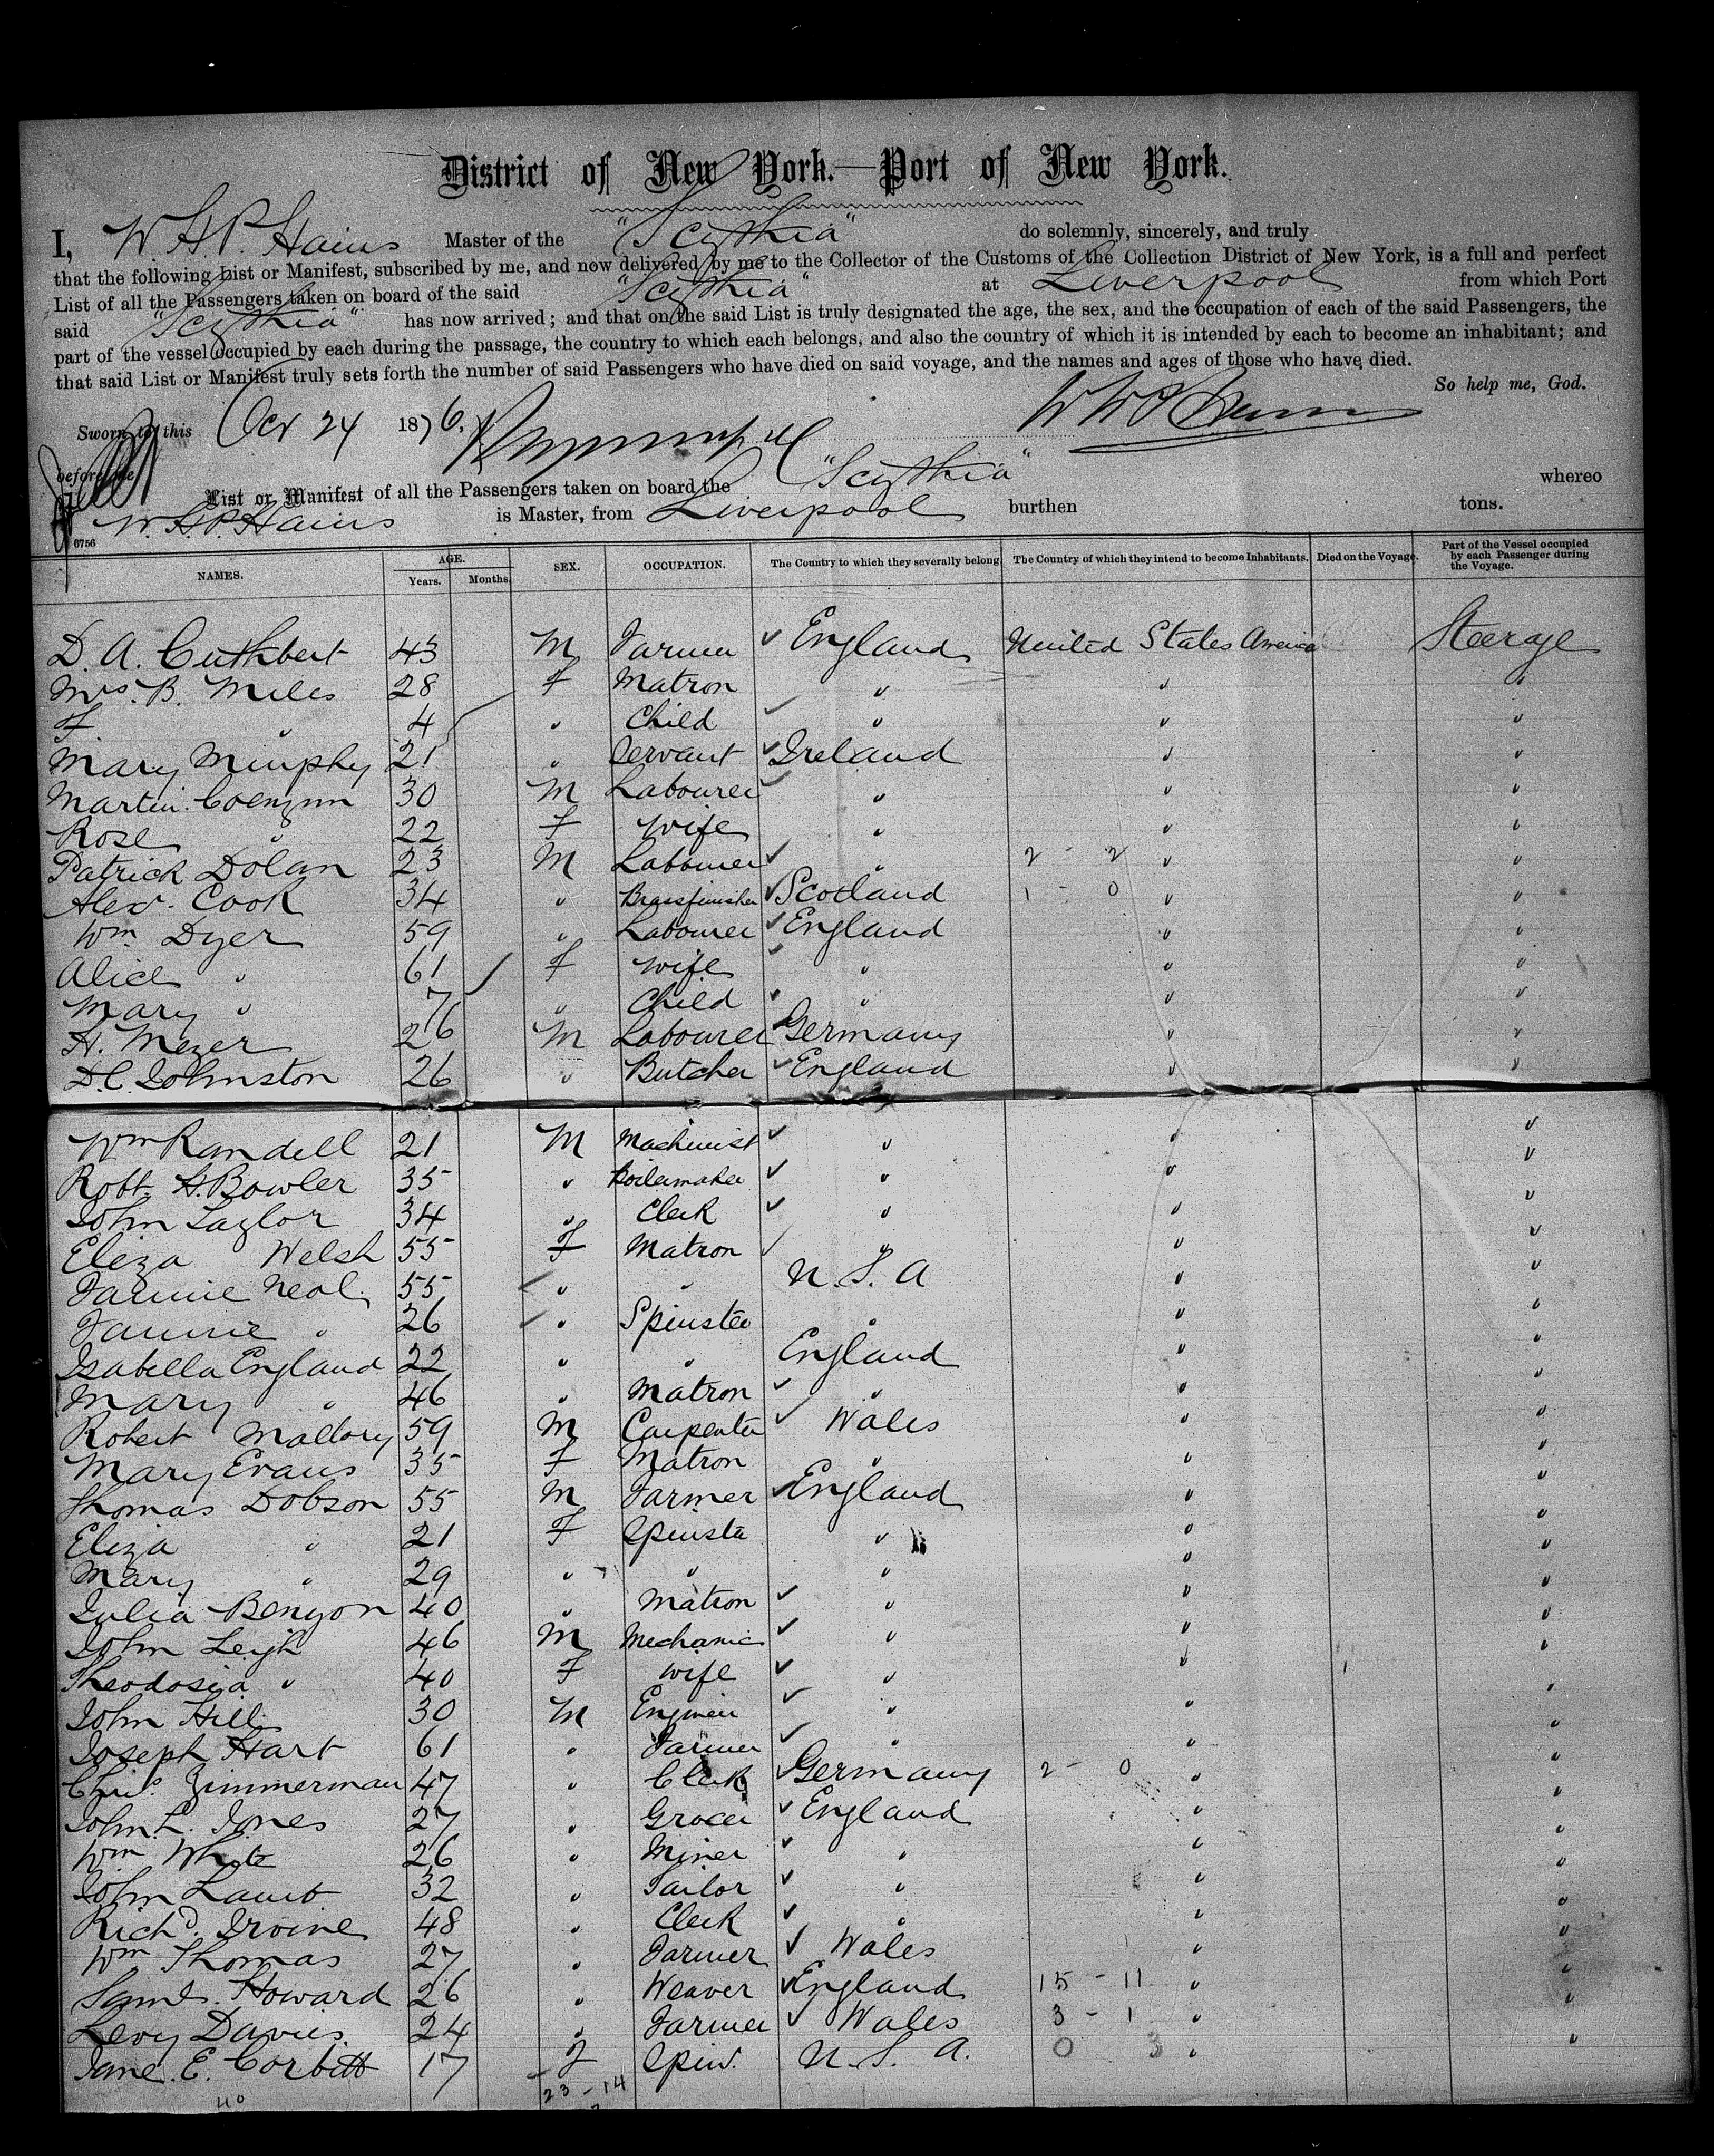 District of New York.—Port of New York.
I, W. H. P. Hains Master of the "Scythia" do solemnly, sincerely, and truly
that the following List or Manifest, subscribed by me, and now delivered by me to the Collector of the Customs of the Collection District of New York, is a full and perfect
List of all the Passengers taken on board of the said "Scythia" at Liverpool from which Port
said "Scythia" has now arrived; and that on the said List is truly designated the age, the sex, and the occupation of each of the said Passengers, the
part of the vessel occupied by each during the passage, the country to which each belongs, and also the country of which it is intended by each to become an inhabitant; and
that said List or Manifest truly sets forth the number of said Passengers who have died on said voyage, and the names and ages of those who have died.
So help me, God.
Sworn to this Oct 24 1876,
before me
List or Manifest of all the Passengers taken on board the "Scythia" whereo
W. H. P. Hains is Master, from Liverpool burthen tons.
6756
NAMES. AGE. Years. Months. SEX. OCCUPATION. The Country to which they severally belong The Country of which they intend to become Inhabitants. Died on the Voyage. Part of the Vessel occupied by each Passenger during the Voyage.
D. A. Cuthbert 43 M Farmer England United States America Steerage
Mrs. B. Miles 28 F Matron " " "
F " 4 " Child " " "
Mary Murphy 21 " Servant Ireland " "
Martin 30 M Labourer " " "
Rose " 22 F Wife " " "
Patrick Dolan 23 M Labourer " 2 - 2 " "
Alexr. Cook 34 " Brassfinisher Scotland 1 - 0 " "
Wm Dyer 59 " Labourer England " "
Alice " 61 F Wife " " "
Mary " 7 " Child " " "
H. Mezer 26 M Labourer Germany " "
D. C. Johnston 26 " Butcher England " "
Wm Randell 21 M Machinist " " "
Robt. H. Bowler 35 " Boilermaker " " "
John Taylor 34 " Clerk " " "
Eliza Welsh 55 F Matron " " "
Fannie Neal 55 " " U. S. A " "
Fannie " 26 " Spinster " " "
Isabella England 22 " " England " "
Mary " 46 " Matron " " "
Robert Mallory 59 M Carpenter Wales " "
Mary Evans 35 F Matron " " "
Thomas Dobson 55 M Farmer England " "
Eliza " 21 F Spinster " " "
Mary " 29 " " " " "
Julia Benyon 40 " Matron " " "
John Leigh 46 M Mechanic " " "
Theodosia " 40 F Wife " " "
John Hill 30 M Engineer " " "
Joseph Hart 61 " Farmer " " "
Chrs. Zimmerman 47 " Clerk Germany 2 - 0 " "
John L. Jones 27 " Grocer England " "
Wm White 26 " Miner " " "
John Lamb 32 " Tailor " " "
Richd. Irvine 48 " Clerk " " "
Wm Thomas 27 " Farmer Wales " "
Saml. Howard 26 " Weaver England 15 - 11 " "
Levy Davies 24 " Farmer Wales 3 - 1 " "
Jane. E. Corbett 17 F Spin. U. S. A. 0 3 " "
40 23 - 14